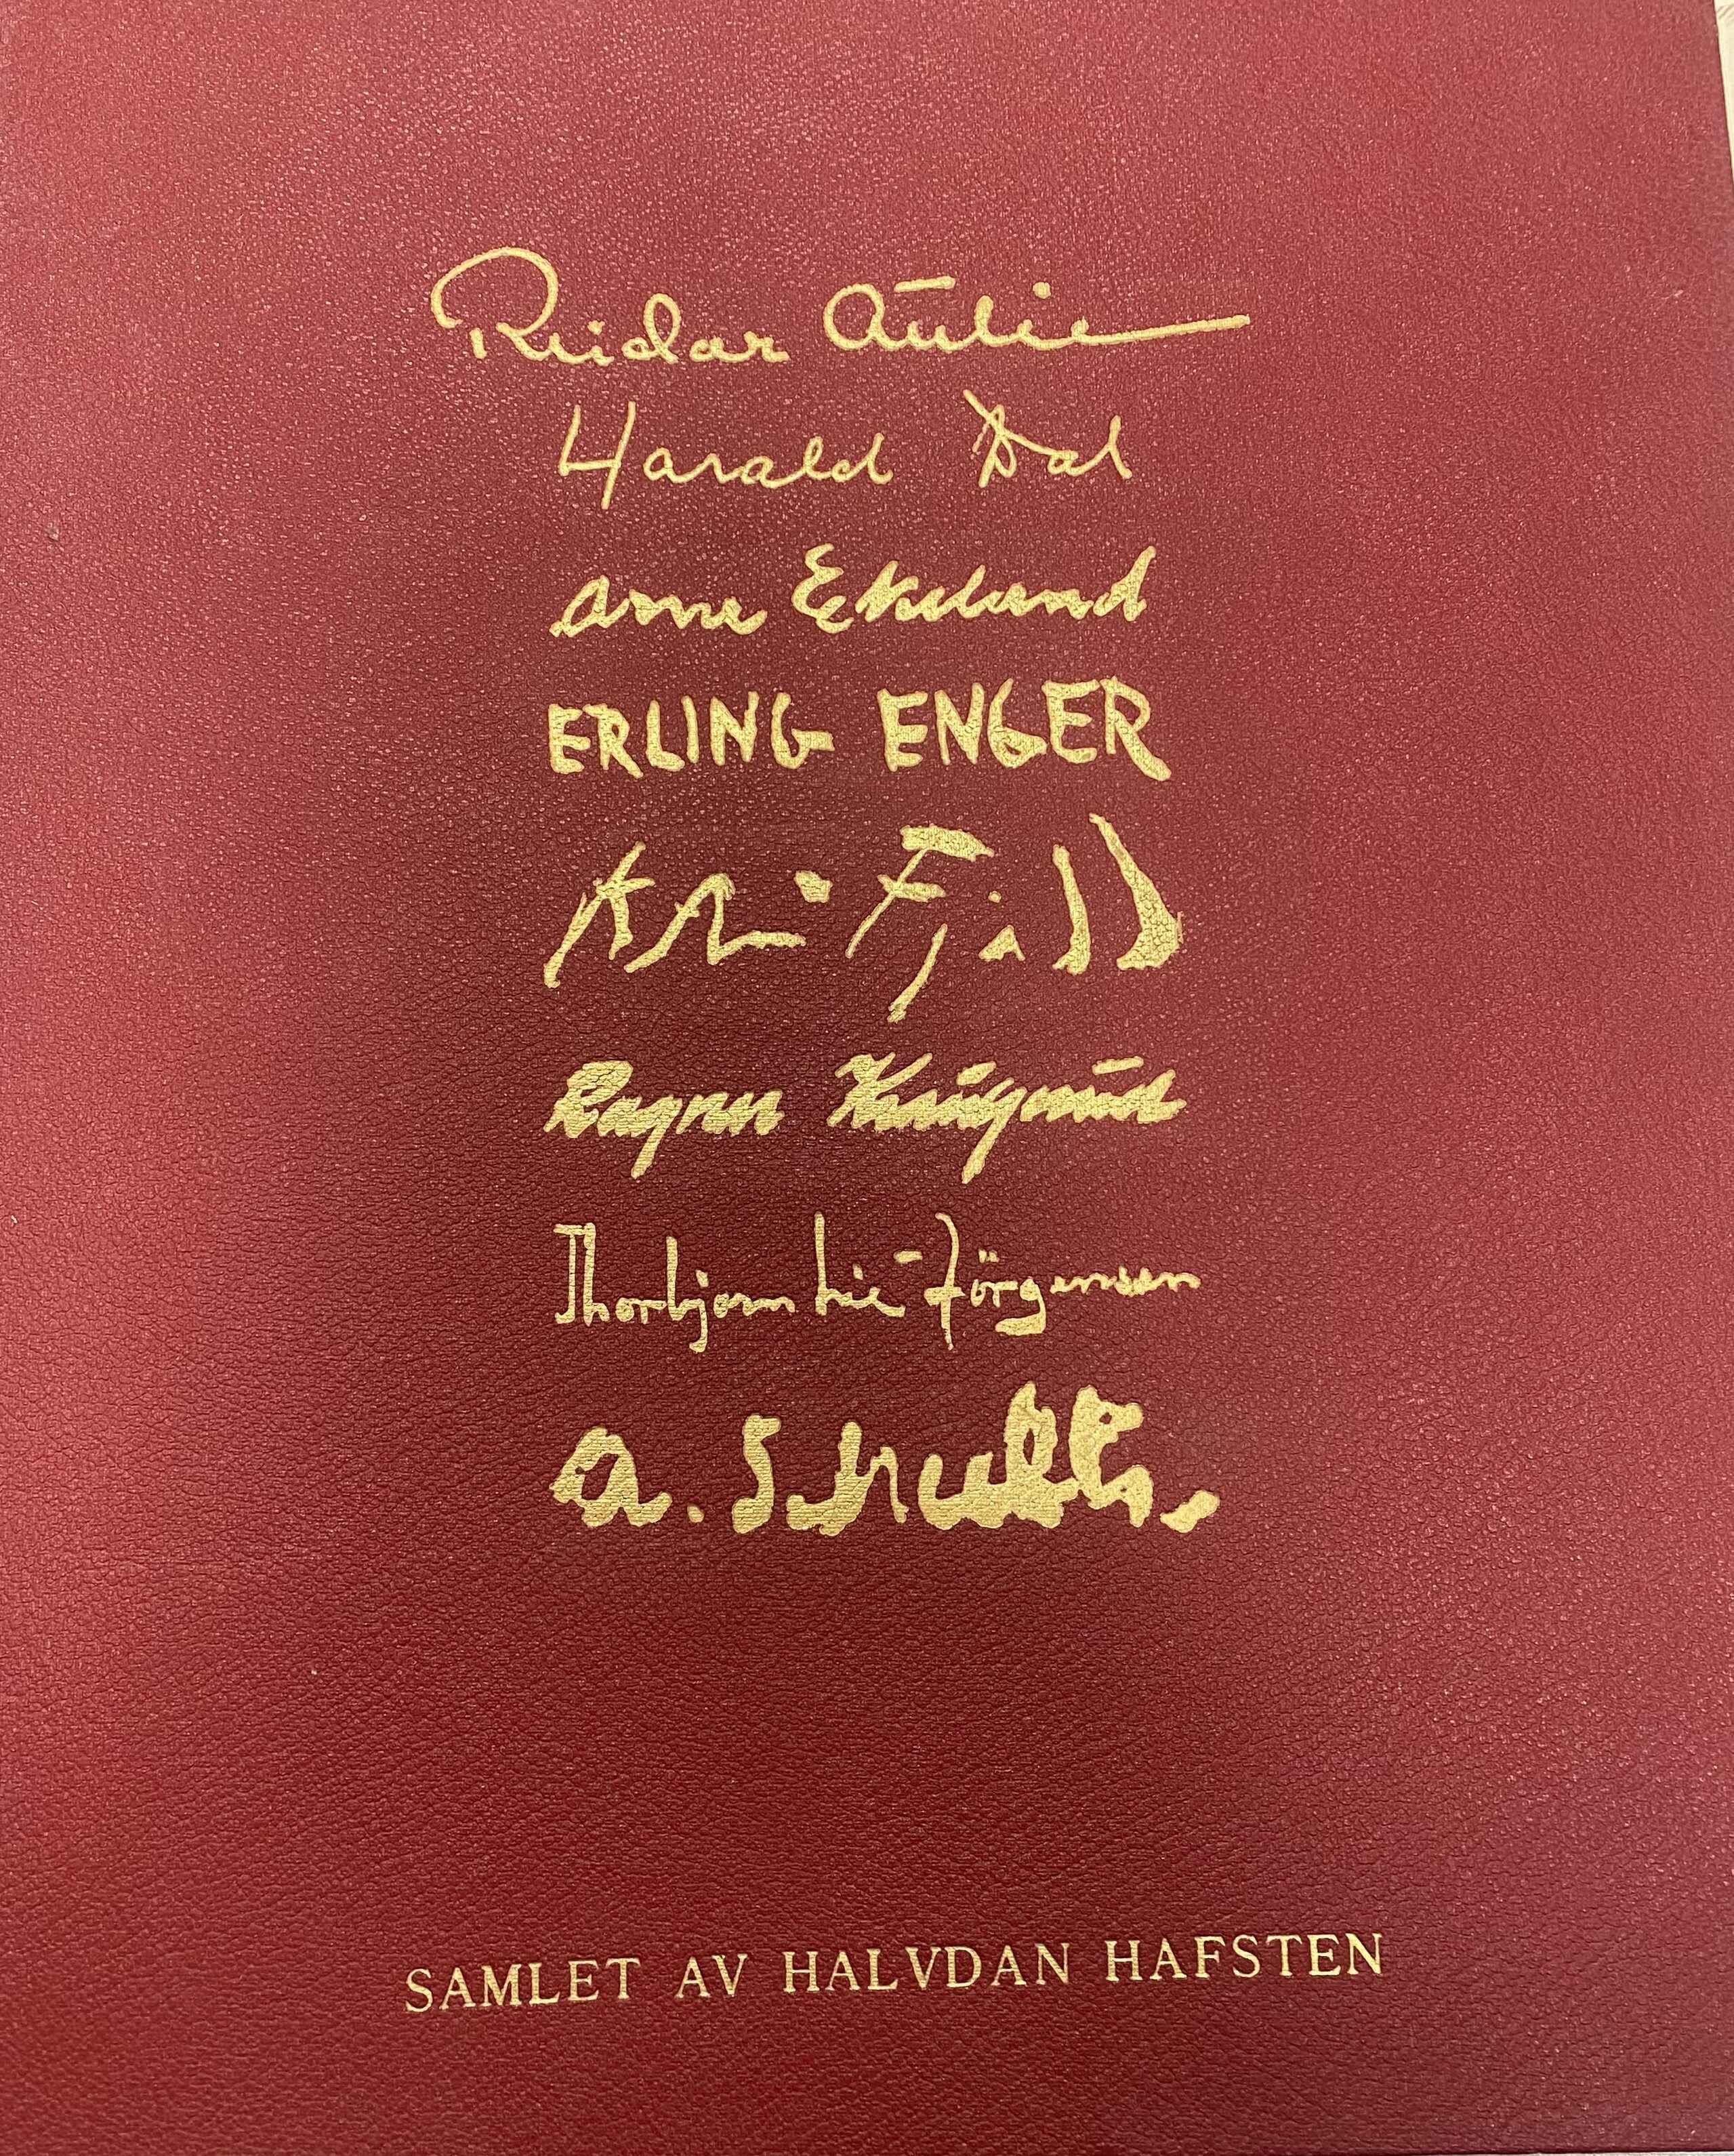 Reidar Aulie
Harald Dal
Arne Ekeland
ERLING ENGER
Kai Fjell
Ragnar Kraugerud
Thorbjørn Lie-Jörgensen
A. Schultz
SAMLET AV HALVDAN HAFSTEN